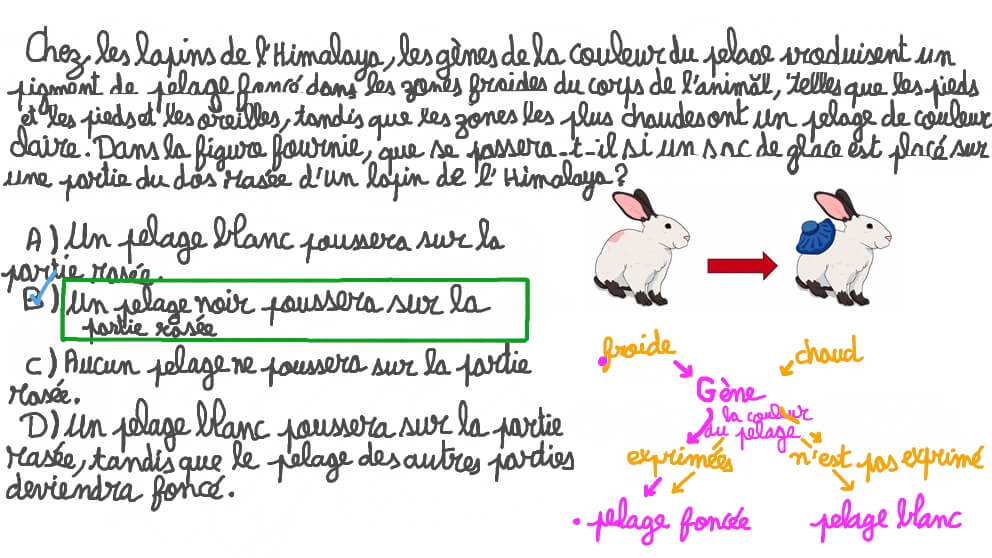 Chez, les lapins de l'Himalaya, les gènes de la couleur du pelage produisent un
pigment de pelage foncé dans les zones froides du corps de l'animal, telles que les pieds
et les pieds et les oreilles, tandis que les zones les plus chaudes ont un pelage de couleur
claire. Dans la figure fournie, que se passera-t-il si un sac de glace est placé sur
une partie du dos rasée d'un lapin de l'Himalaya?
A) Un pelage blanc poussera sur la
partie rasée.
B) Un pelage noir poussera sur la
partie rasée
C) Aucun pelage ne poussera sur la partie
rasée.
D) Un pelage blanc poussera sur la partie
rasée, tandis que le pelage des autres parties
deviendra foncé.
froide
chaud
Gène
la couleur
du pelage
exprimées
n'est pas exprimé
pelage foncée
pelage blanc